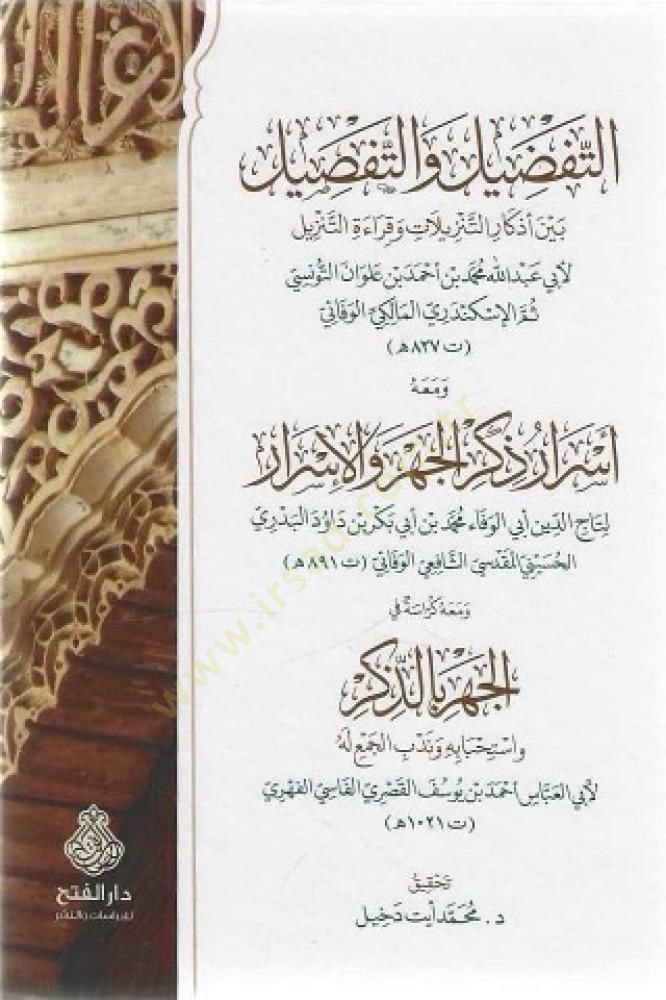 التَّفضِيل والتَّفصِيل
بَيْنَ أذكَارِ التَّنزِيلَاتِ وَقِرَاءَةِ التَّنْزِيل
لأبي عَبْدِ اللَّه مُحَمَّد بن أحمَد بن عَلوَان التُّونسيّ
ثُمَّ الإسكندَريّ المَالِكيّ الوَفَائيّ
(ت ٨٢٧ هـ)
وَمَعَهُ
أسرَارُ ذِكْرِ الجَهْرِ وَالإسْرَار
لِتَاج الدِّين أبي الوَفَاء مُحَمَّد بن أبي بَكر بن دَاوُد البَدْري
الحُسَيْنيّ المَقدسِيّ الشَّافِعِيّ الوَفَائيّ (ت ٨٩١ هـ)
وَمَعَهُ كُرَّاسَةٌ في
الجَهْر بِالذِّكْرِ
وَاسْتِحْبَابِهِ وَنَدْبِ الجَمْعِ لَهُ
لأبي العَبَّاس أحمَد بن يُوسُفَ القَصْرِيّ الفَاسِيّ الفِهْرِيّ
(ت ١٠٢١ هـ)
تَحْقِيقُ
د. مُحَمَّد أيت دَخيل
دار الفتح
للدراسات والنشر
www.irsad.com.tr